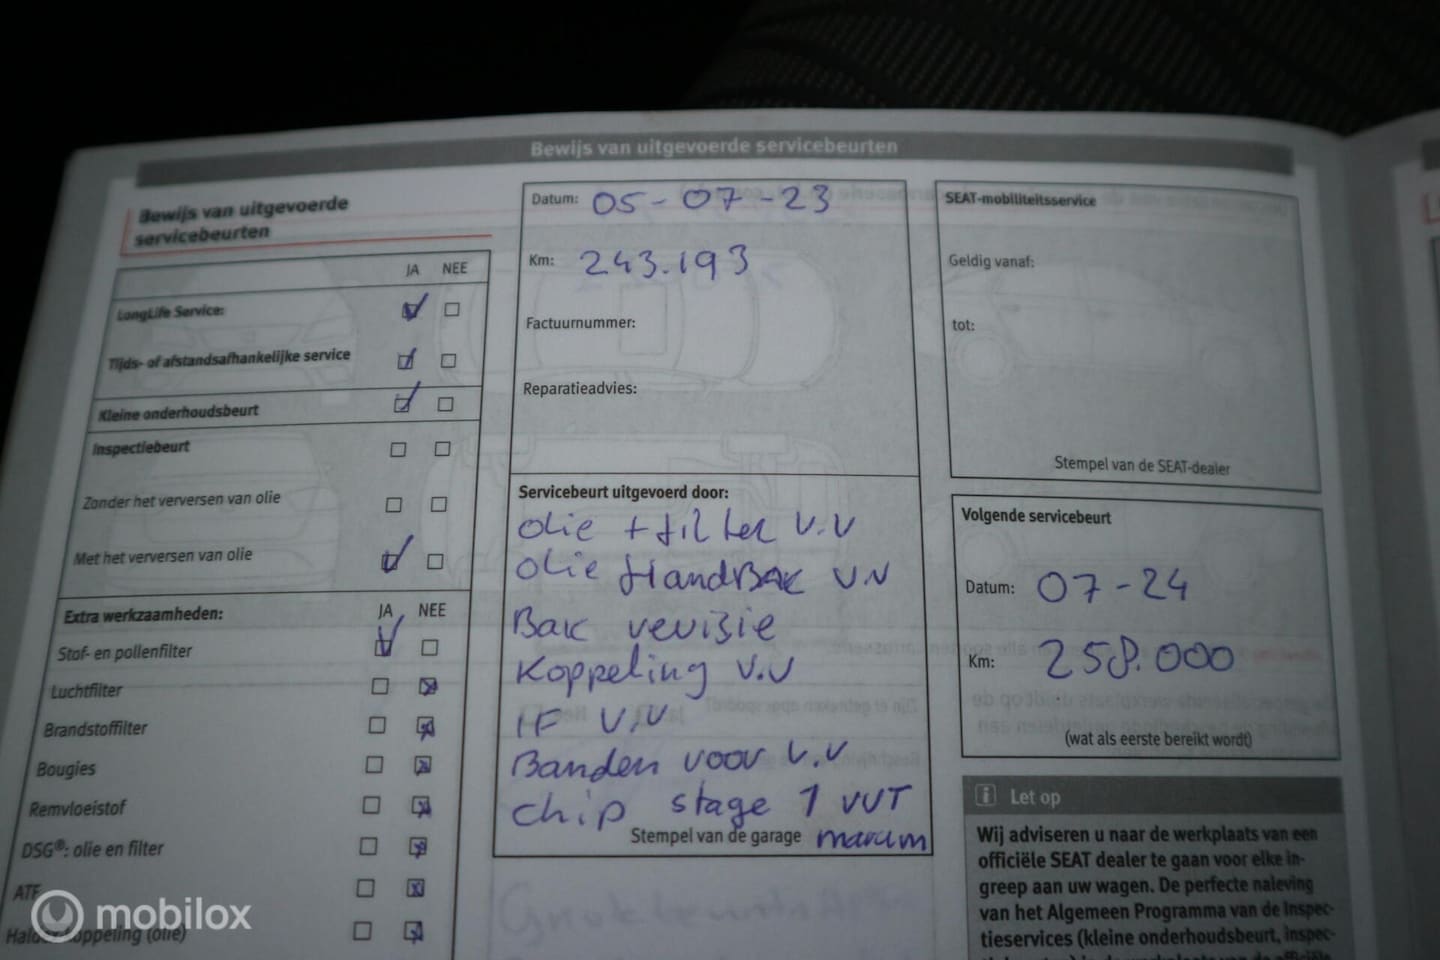 Bewijs van uitgevoerde servicebeurten
Bewijs van uitgevoerde
servicebeurten
JA NEE
LongLife Service:
Tijds- of afstandsafhankelijke service
Kleine onderhoudsbeurt
Inspectiebeurt
Zonder het verversen van olie
Met het verversen van olie
Extra werkzaamheden: JA NEE
Stof- en pollenfilter
Luchtfilter
Brandstoffilter
Bougies
Remvloeistof
DSG®: olie en filter
ATF
Haldex-koppeling (olie)
Datum: 05-07-23
Km: 243.193
Factuurnummer:
Reparatieadvies:
Servicebeurt uitgevoerd door:
olie + filter V.V
olie HandBak V.V
Bak revisie
Koppeling V.V
IF V.V
Banden voor V.V
chip stage 1 VVT
Stempel van de garage marum
SEAT-mobiliteitsservice
Geldig vanaf:
tot:
Stempel van de SEAT-dealer
Volgende servicebeurt
Datum: 07-24
Km: 258.000
(wat als eerste bereikt wordt)
i Let op
Wij adviseren u naar de werkplaats van een
officiële SEAT dealer te gaan voor elke in-
greep aan uw wagen. De perfecte naleving
van het Algemeen Programma van de Inspec-
tieservices (kleine onderhoudsbeurt, inspec-
mobilox